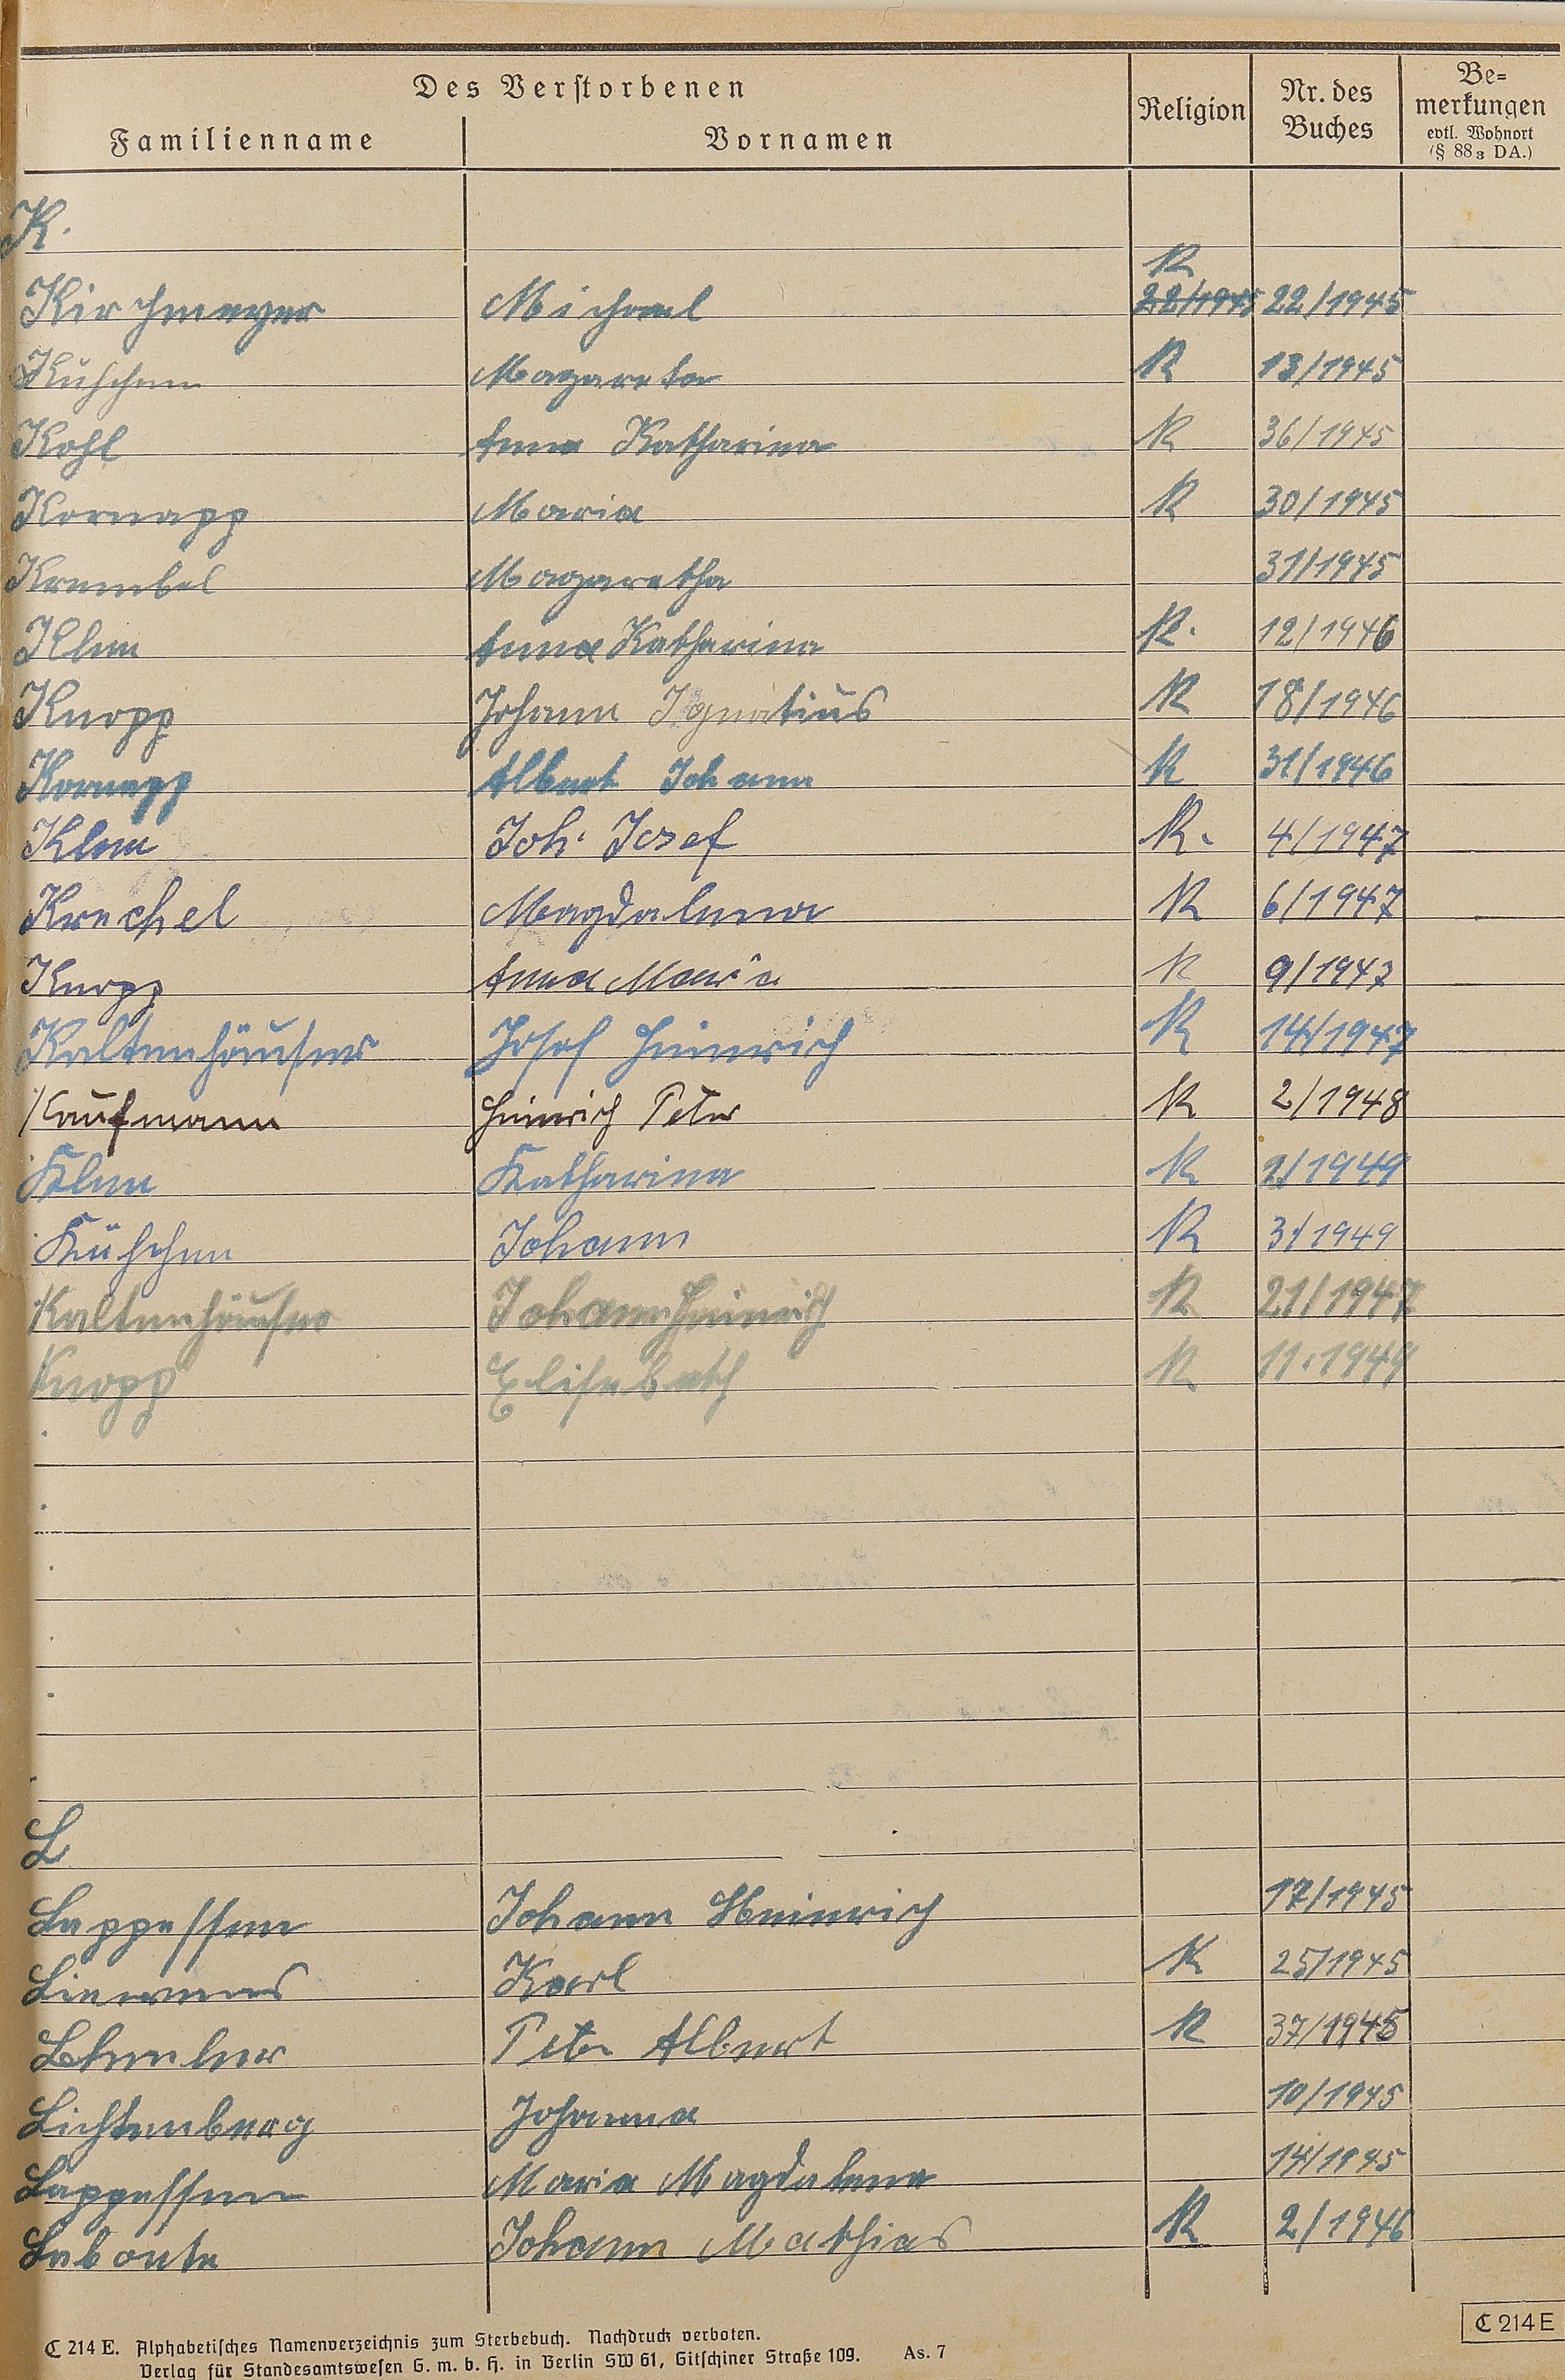 Des Verstorbenen
Familienname Vornamen Religion Nr. des Buches Be=merkungen evtl. Wohnort (§ 88 3 DA.)
K.
K
Kirchmeyer Michael 22/1945 22/1945
Kühchen Magareta K 13/1945
Kohl Anna Katharina K 36/1945
Kornapp Maria K 30/1945
Krembel Magaretha 31/1945
Klem Anna Katharina K. 12/1946
Knopp Johann Ignatius K 18/1946
Kornapp Albert Johann K 31/1946
Klem Joh. Josef K. 4/1947
Krechel Magdalena K 6/1947
Knopp Anna Maria K 9/1947
Kaltenhäuser Josef Heinrich K 14/1947
Kaufmann Heinrich Peter K 2/1948
Klem Katharina K 2/1949
Kühchen Johann K 3/1949
Kaltenhäuser Johann Heinrich K 21/1947
Knopp Elisabeth K. 11/1949
L
Lappessen Johann Heinrich 17/1945
Karl K 25/1945
Peter Albert K 37/1945
Lichtenberg Johanna 10/1945
Lappessen Maria Magdalena 14/1945
Labonte Johann Mathias K 2/1946
C 214 E. Alphabetisches Namenverzeichnis zum Sterbebuch. Nachdruck verboten.
Verlag für Standesamtswesen G. m. b. H. in Berlin SW 61, Gitschiner Straße 109. As. 7
C 214 E